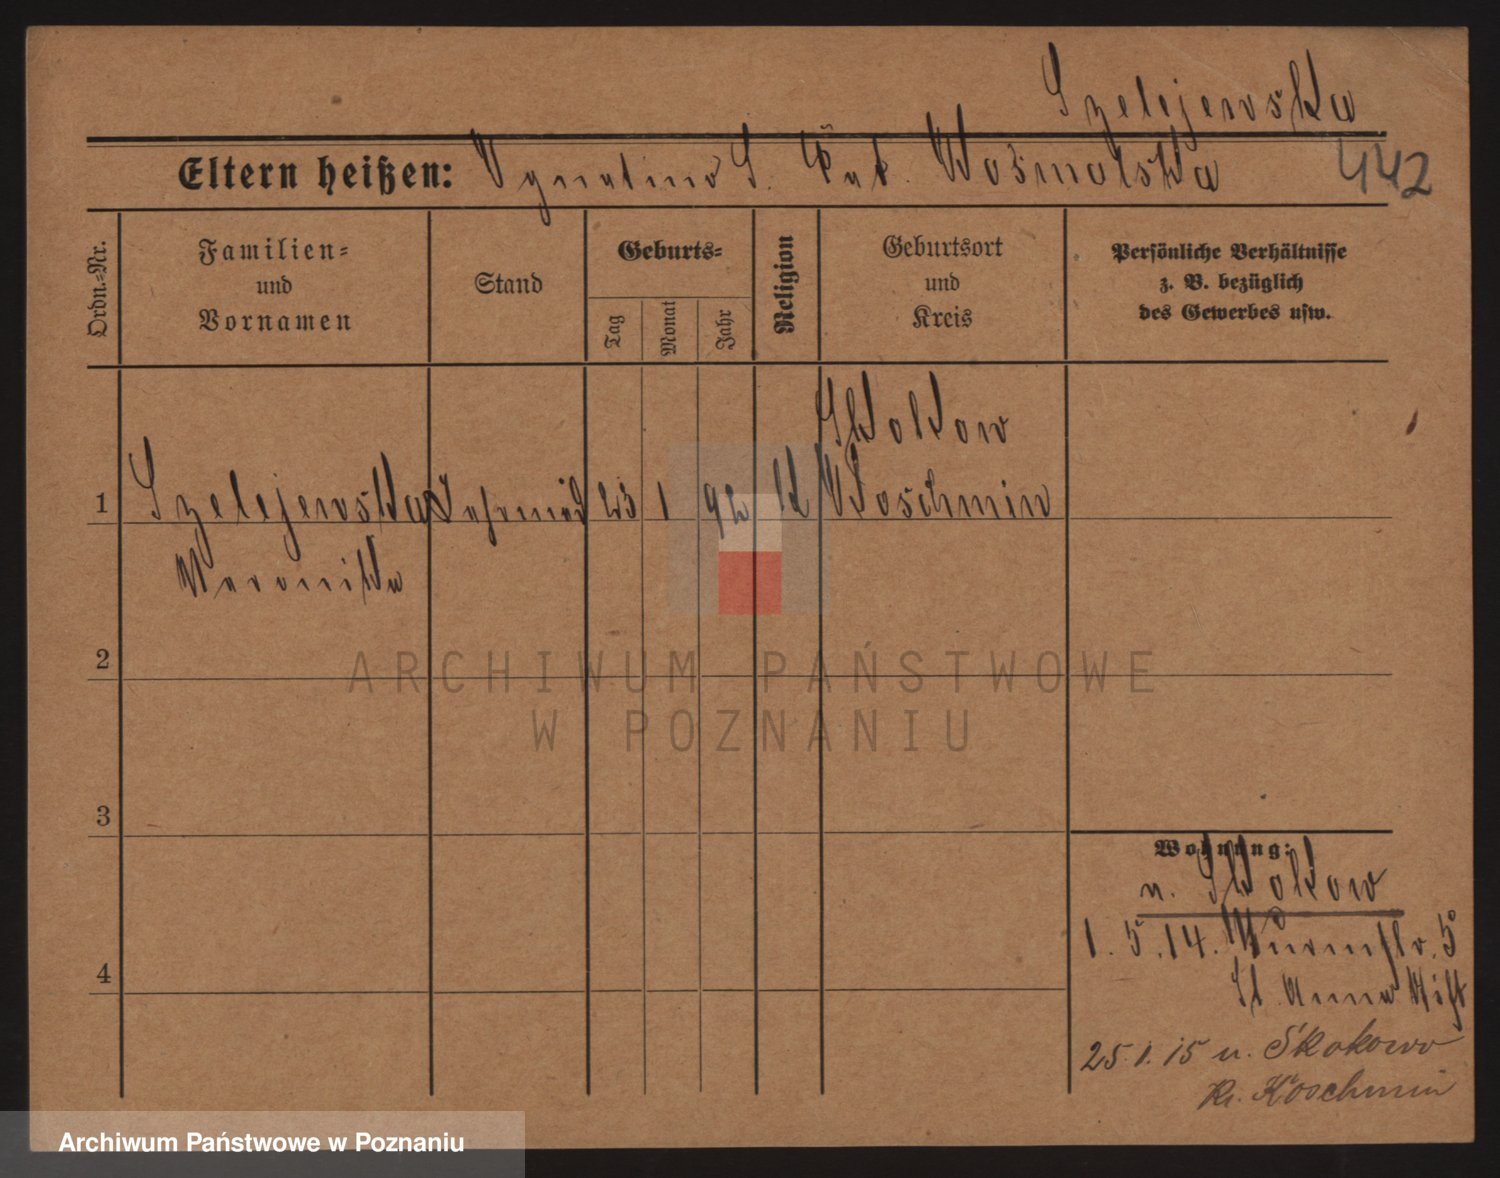 Szelejewska
442
Eltern heißen: Ignatius S. Kat. Kosmalska
Ordn.-Nr.
Familien-
und
Vornamen
Stand
Geburts-
Tag
Monat
Jahr
Religion
Geburtsort
und
Kreis
Persönliche Verhältnisse
z. B. bezüglich
des Gewerbes usw.
Skokow
1 Szelejewska 23 1 92 k Koschmin
Veronika
2
3
4
Wohnung:
n. Skokow
1. 5. 14. 5
St. Anna Stift
25. 1. 15 n. Skokowo
Kr. Koschmin
ARCHIWUM PAŃSTWOWE
W POZNANIU
Archiwum Państwowe w Poznaniu